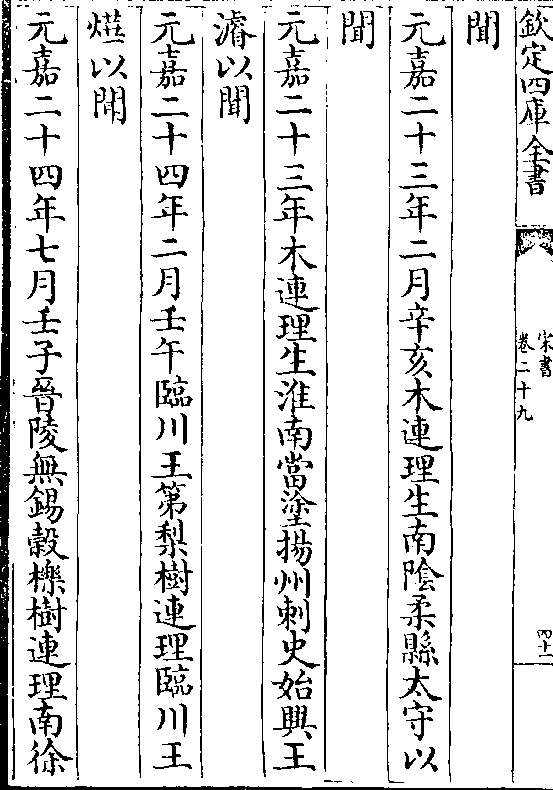 欽定四庫全書
宋書
卷二十九
四十一
聞
元嘉二十三年二月辛亥木連理生南陰柔縣太守以
聞
元嘉二十三年木連理生淮南當塗揚州刺史始興王
濬以聞
元嘉二十四年二月壬午臨川王第梨樹連理臨川王
燁以聞
元嘉二十四年七月壬子晉陵無錫穀櫟樹連理南徐